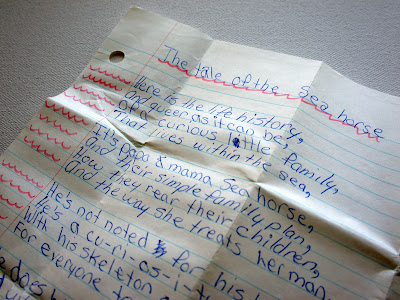 The tale of the Sea horse
Here is the life history,
and queer as it can be,
Of a curious little family,
That lives within the sea,
It's papa & mama Sea horse,
And their simple family plan,
How they rear their children,
And the way she treats herman,
He's not noted for his
He's a cu-ri-os-i-t
With his skeleton
For everyone
e does